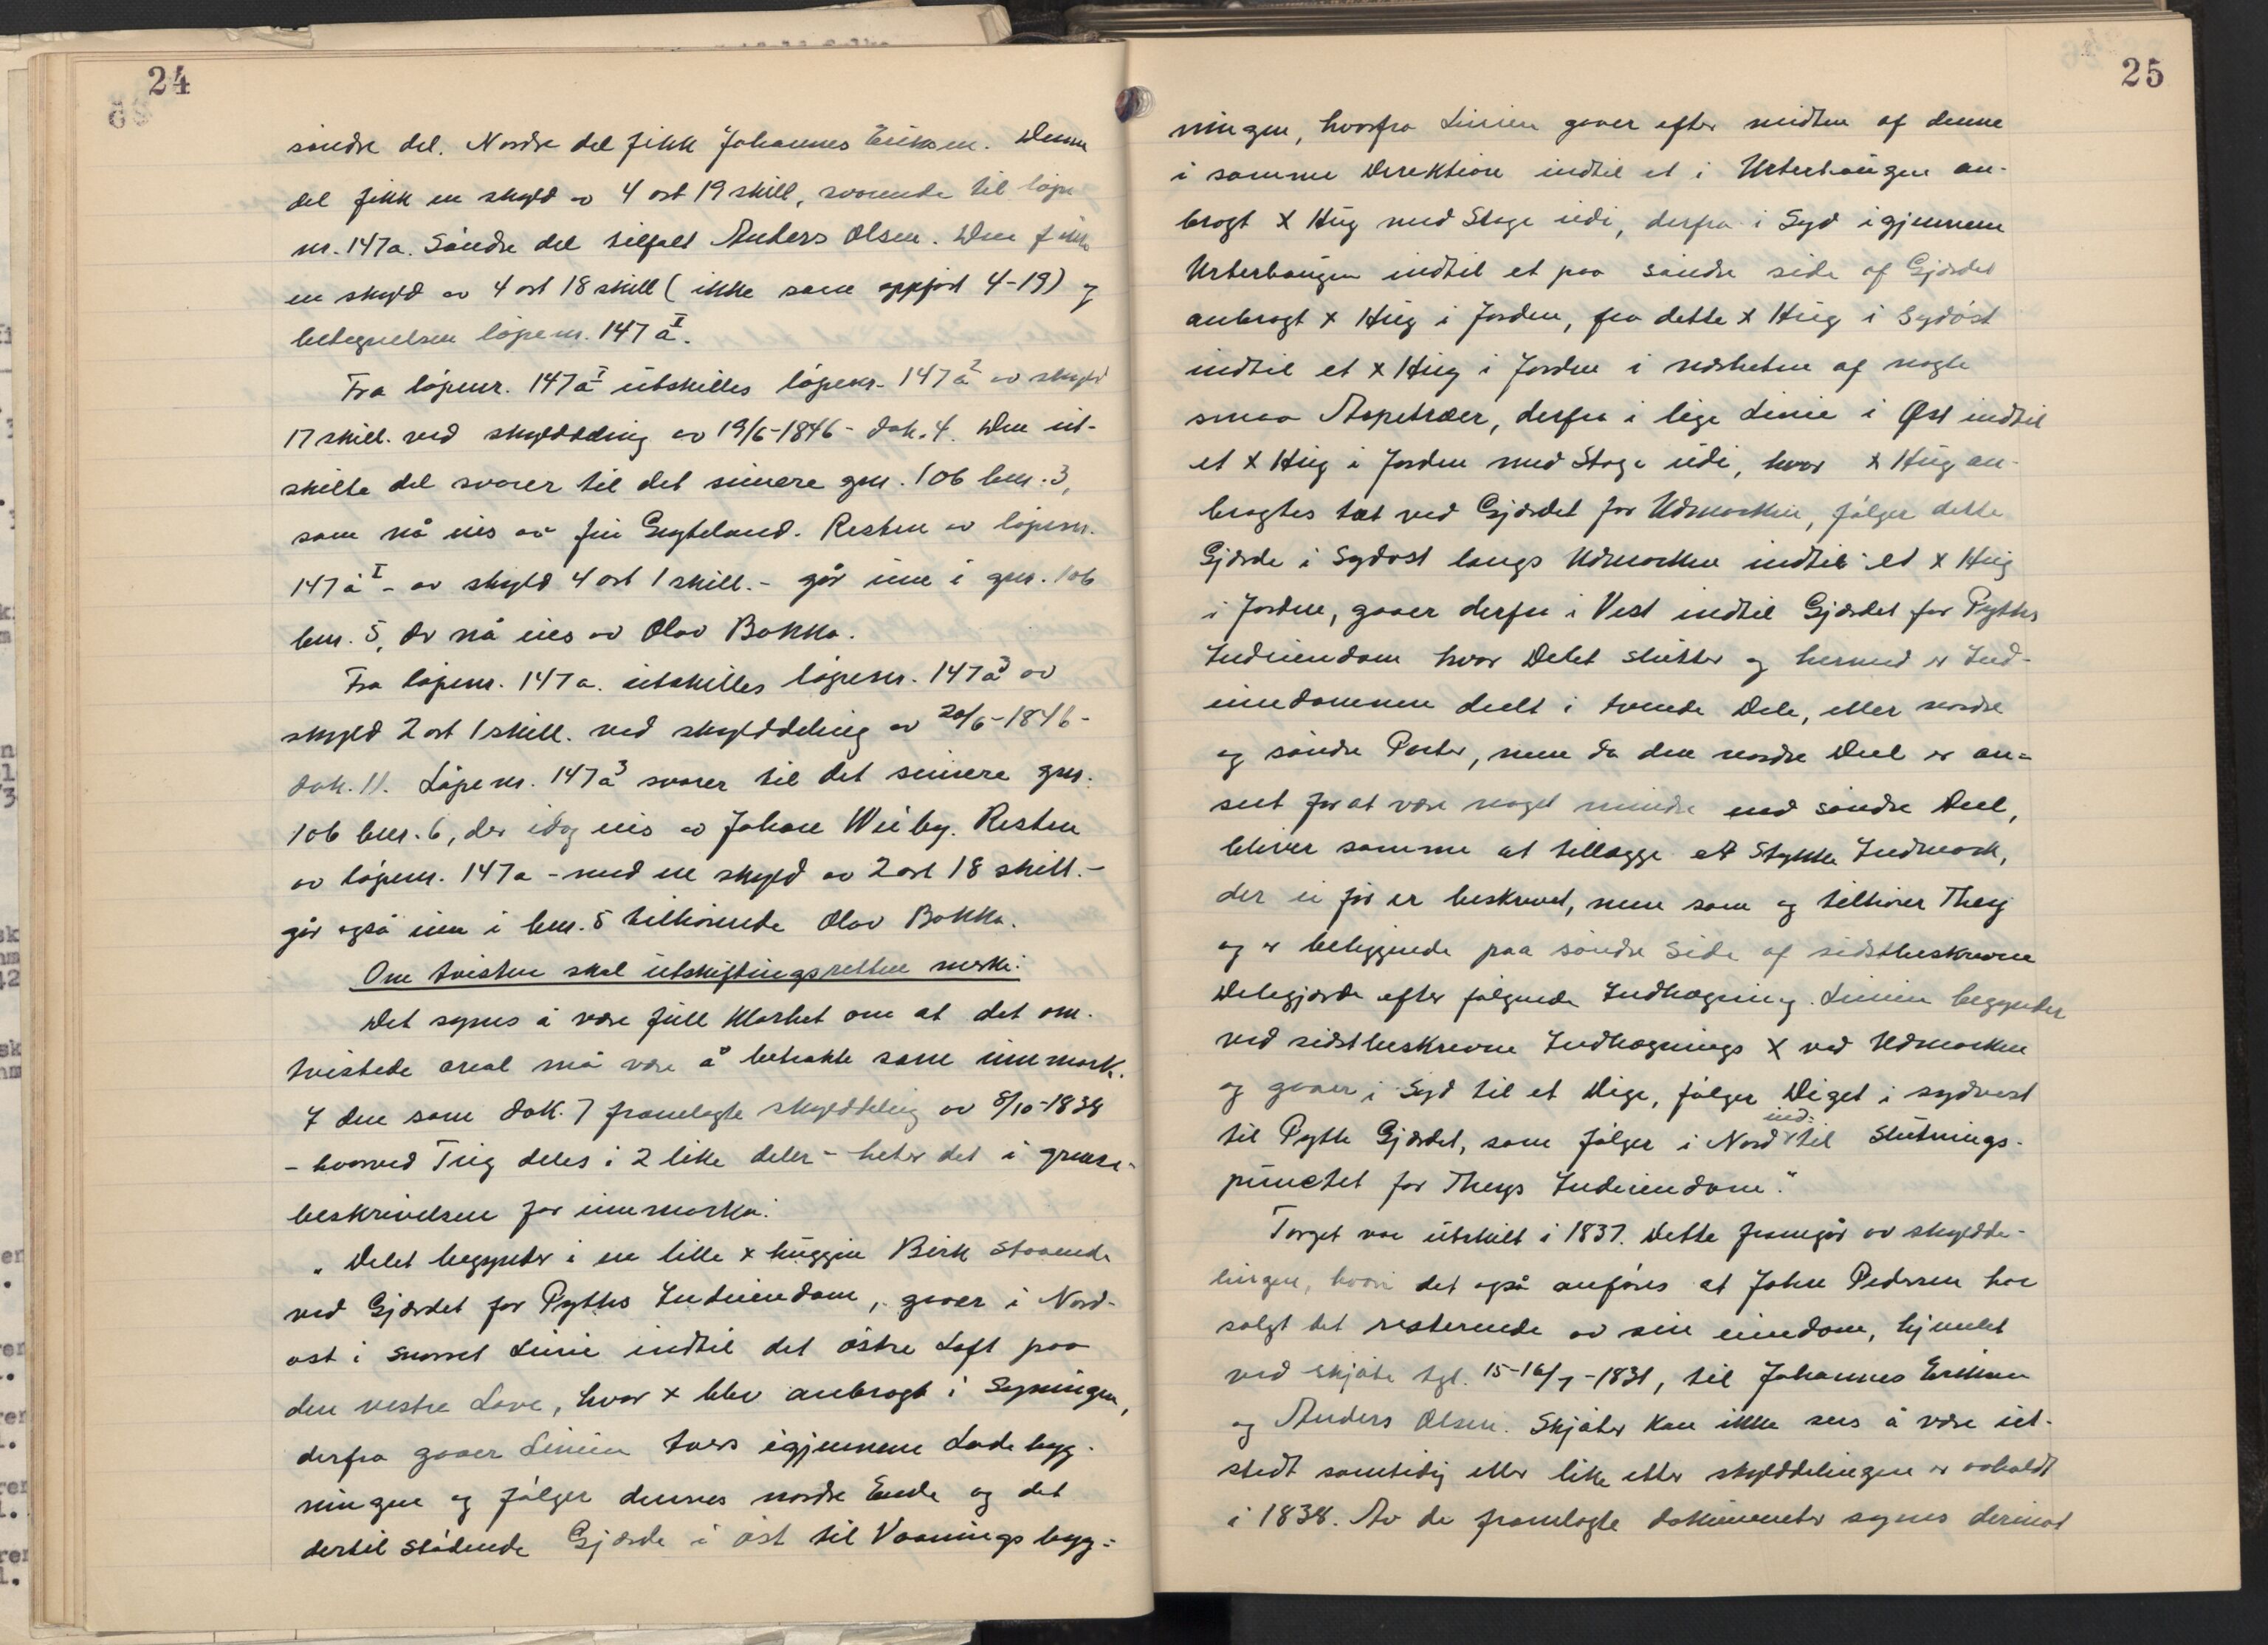 24
søndre del. Nordre del fikk Johannes Eriksen. Denne
del fikk en skyld av 4 ort 19 skill, svarende til løpe
nr. 147a. Søndre del tilfalt Anders Olsen. Den fikk
en skyld av 4 ort 18 skill (ikke som oppført 4-19) og
betegnelsen løpenr. 147 a I.
Fra løpenr. 147 a I utskilles løpenr. 147 a 2 av skyld
17 skill. ved skylddeling av 19/6-1846 - dok. 4. Den ut-
skilte del svarer til det senere gnr. 106 bnr. 3,
som nå eies av fru Grøteland. Resten av løpenr.
147 a I - av skyld 4 ort 1 skill. - går inn i gnr. 106
bnr. 5, der nå eies av Olav Bakka.
Fra løpenr. 147 a. utskilles løpenr. 147 a 3 av
skyld 2 ort 1 skill. ved skylddeling av 20/6-1846 -
dok. 11. Løpenr. 147 a 3 svarer til det senere gnr.
106 bnr. 6, der idag eies av Johan Wiiby. Resten
av løpenr. 147a - med en skyld av 2 ort 18 skill. -
går også inn i bnr. 5 tilhørende Olav Bakka.
Om tvisten skal utskiftingsretten merke:
Det synes å være full klarhet om at det om-
tvistede areal må være å betrakte som innmark.
I den som dok. 7 framlagte skylddeling av 8/10-1838
- hvorved Teig deles i 2 like deler - heter det i grense-
beskrivelsen for innmarka:
"Delet begynder i en lille x huggen Birk staaende
ved Gjærdet for Pytts Indeiendom, gaaer i Nord-
ost i snorret Linie indtil det østre Loft paa
den vestre Lave, hvor x blev anbragt i Syningen,
derfra gaaer Linien tvers igjennem Ladebyg-
ningen og følger dennes nordre Ende og det
dertil stødende Gjærde i øst til Vaaningsbyg-
25
ningen, hvorfra Linien gaaer efter midten af denne
i samme Direktion indtil et i Urterhaugen an-
bragt x Hug med Stage udi, derfra i Syd igjennem
Urterhaugen indtil et paa søndre side af Gjærdet
anbragt x Hug i Jorden, fra dette x Hug i Sydøst
indtil et x Hug i Jorden i nærheten af nogle
smaa Aspetræer, derfra i lige Linie i Øst indtil
et x Hug i Jorden med Stage udi, hvor x Hug an-
bragtes tæt ved Gjærdet for Udmarken, følger dette
Gjærde i Sydost langs Udmarken indtil et x Hug
i Jorden, gaaer derfra i Vest indtil Gjærdet for Pytts
Indeiendom hvor Delet slutter og hermed er Ind-
eiendommen deelt i tvende Dele, eller nordre
og søndre Parter, men da den nordre Deel er an-
seet for at være noget mindre end søndre Deel,
bliver samme at tillægge et Stykke Indmark,
der ei før er beskrevet, men som og tilhører Theig
og er beliggende paa søndre Side af sidstbeskrevne
Delegjærde efter følgende Indhægning. Linien begynder
ved sidstbeskrevne Indhægnings x ved Udmarken
og gaaer i Syd til et Dige, følger Diget i sydvest
til Pytte Gjærdet, som følger i Nord ind-til Slutnings-
punctet for Theigs Indeiendom."
Torget var utskilt i 1837. Dette framgår av skyldde-
lingen, hvori det også anføres at John Pedersen har
solgt det resterende av sin eiendom, hjemlet
ved skjøte tgl. 15-16/7-1831, til Johannes Eriksen
og Anders Olsen. Skjøter kan ikke sees å være ut-
stedt samtidig eller like etter skylddelingen er avholdt
i 1838. Av de framlagte dokumenter synes derimot